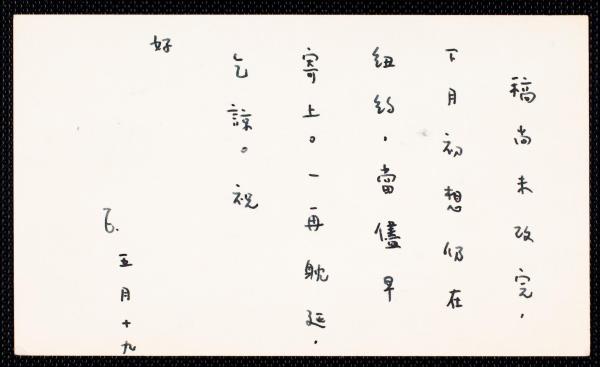 稿尚未改完，
下月初想仍在
紐約，當儘早
寄上。一再躭延，
乞諒。祝
好
五月十九